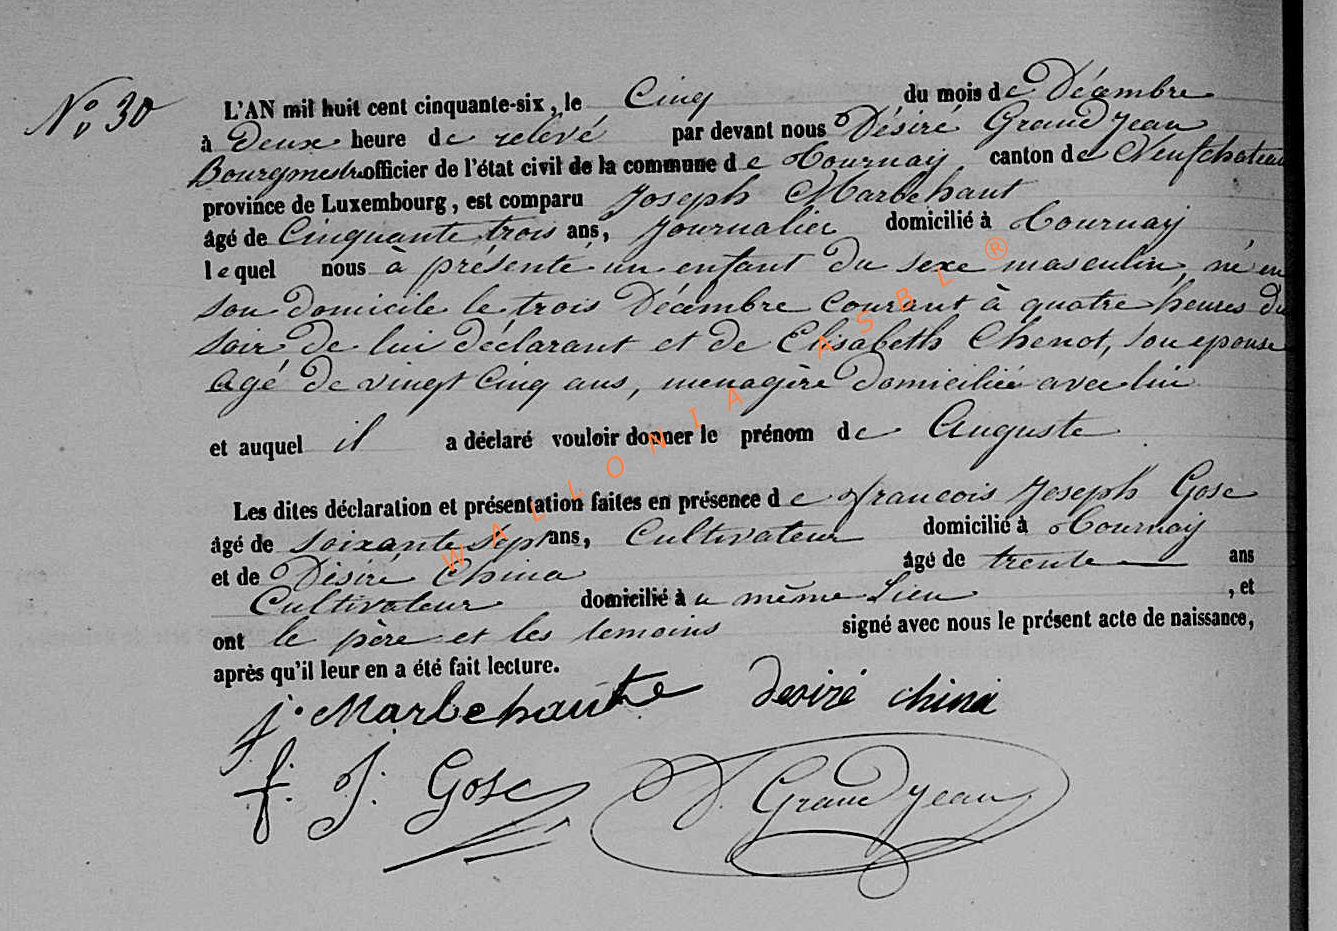 No. 30
L'AN mil huit cent cinquante-six, le Cinq du mois de Décembre
à Deux heure de relévé par devant nous Désiré Grandjean
Bourgmestre officier de l'état civil de la commune de Tournay canton de Neufchateau
province de Luxembourg, est comparu Joseph Marbehaut
âgé de Cinquante trois ans, Journalier domicilié à Tournay
lequel nous à présenté un enfant du sexe masculin, né en
son domicile le trois Décembre courant à quatre heures du
soir, de lui déclarant et de Elisabeth Chenot, son epouse
Agé de vingt cinq ans, menagère domiciliée avec lui
et auquel il a déclaré vouloir donner le prénom de Auguste
Les dites déclaration et présentation faites en présence de francois Joseph Gose
âgé de soixante sept ans, Cultivateur domicilié à Tournay
et de Désiré China âgé de trente ans
Cultivateur domicilié à u même Lieu, et
ont le père et les temoins signé avec nous le présent acte de naissance,
après qu'il leur en a été fait lecture.
j. Marbehaute desiré china
f. J. Gose D. Grandjean
WALLONIA ASBL ®